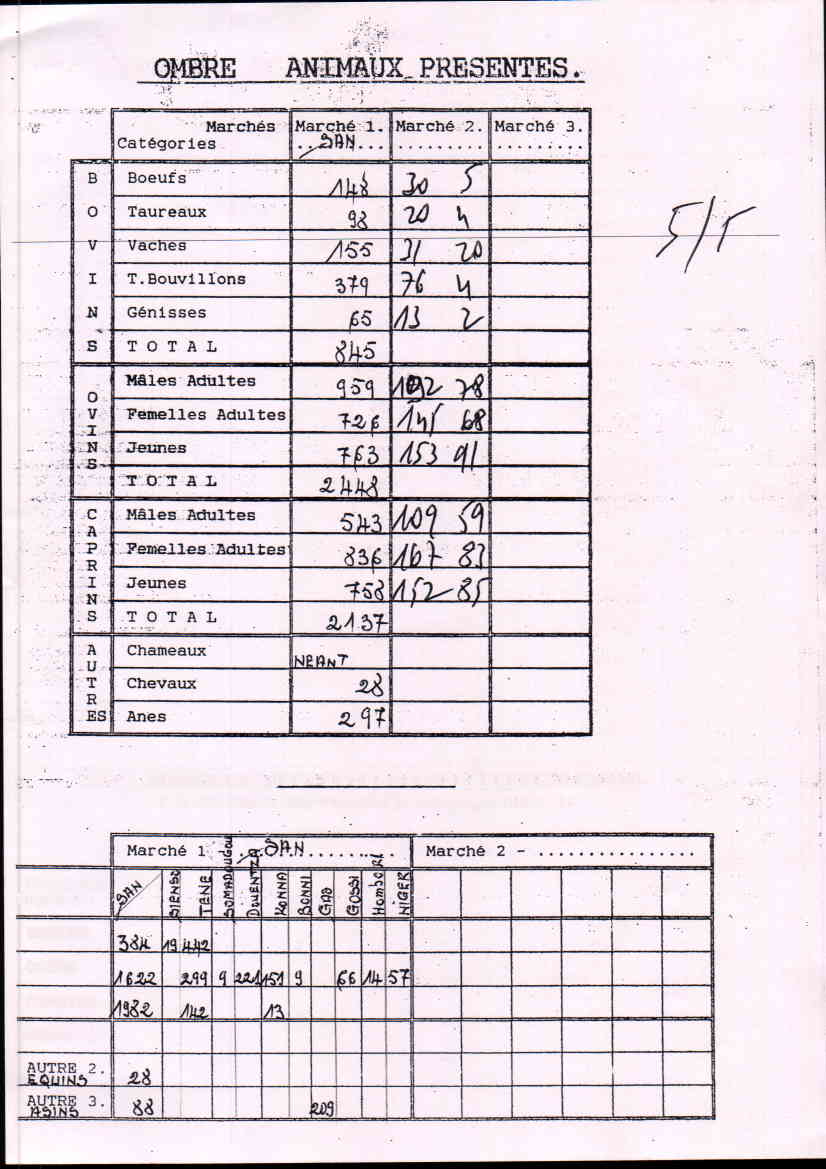 OMBRE ANIMAUX PRESENTES.
Marchés Marché 1. Marché 2. Marché 3.
Catégories ..SAN... ......... .........
BOVINS
Boeufs 148 30 5
Taureaux 98 20 4
Vaches 155 31 20
T.Bouvillons 379 76 4
Génisses 65 13 2
T O T A L 845
5/5
OVINS
Mâles Adultes 959 192 78
Femelles Adultes 726 145 68
Jeunes 763 153 91
T O T A L 2448
CAPRINS
Mâles Adultes 543 109 59
Femelles Adultes 836 167 83
Jeunes 758 152 85
T O T A L 2137
AUTRES
Chameaux NEANT
Chevaux 28
Anes 297
Marché 1 SAN........ Marché 2 - ................
SAN SIENSO TENE SOMADOUGOU DOUENTZA KONNA BONNI GAO GOSSI HOMBORI NIGER
384 19 442
1622 299 9 221 151 9 66 14 57
1982 142 13
AUTRE 2.
EQUINS 28
AUTRE 3.
ASINS 88 209